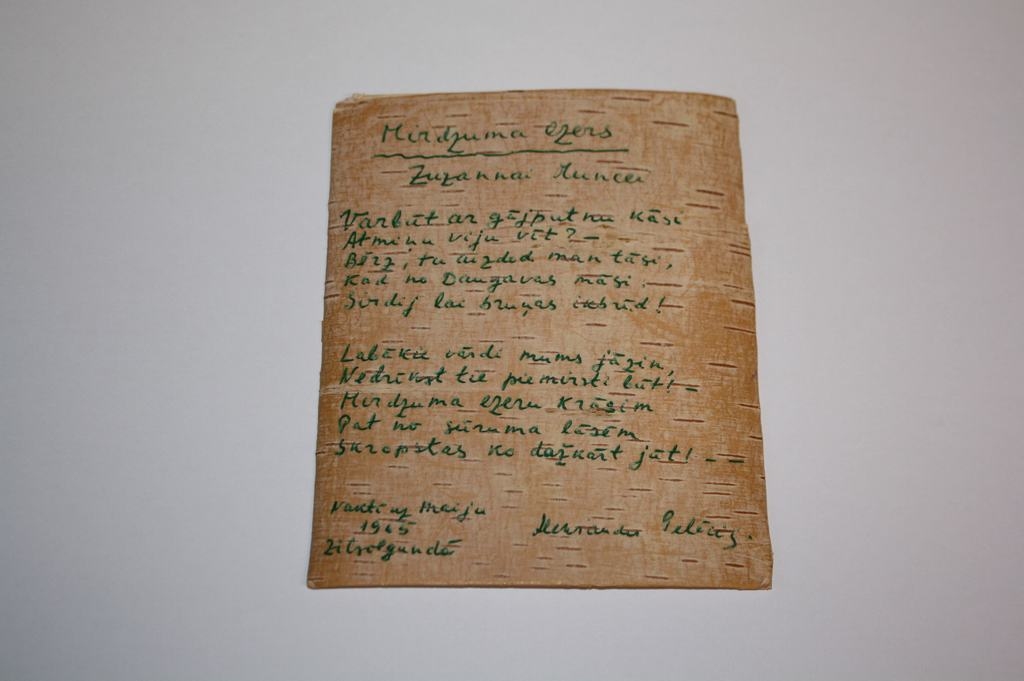 Mirdzuma ezers
Zuzannai Muncei
Varbūt ar gājputnu kāsi
Atmiņu viju vīt? –
Bērz, tu aizded man tāsi,
Kad no Daugavas māsi
Sirdij lai bruņas
Labākie vārdi mums jāzin,
Nedrīkst tie piemirsti būt! –
Mirdzuma ezeru krāsim
Pat no sūruma lāsēm
Skropstas ko dažkārt jūt! – –
Naktī uz Maiju
1965